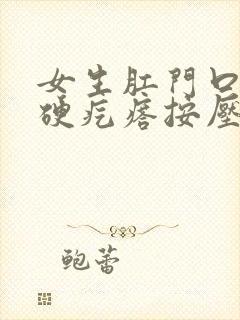 女生肛門口
硬疙瘩按壓
鲍蕾